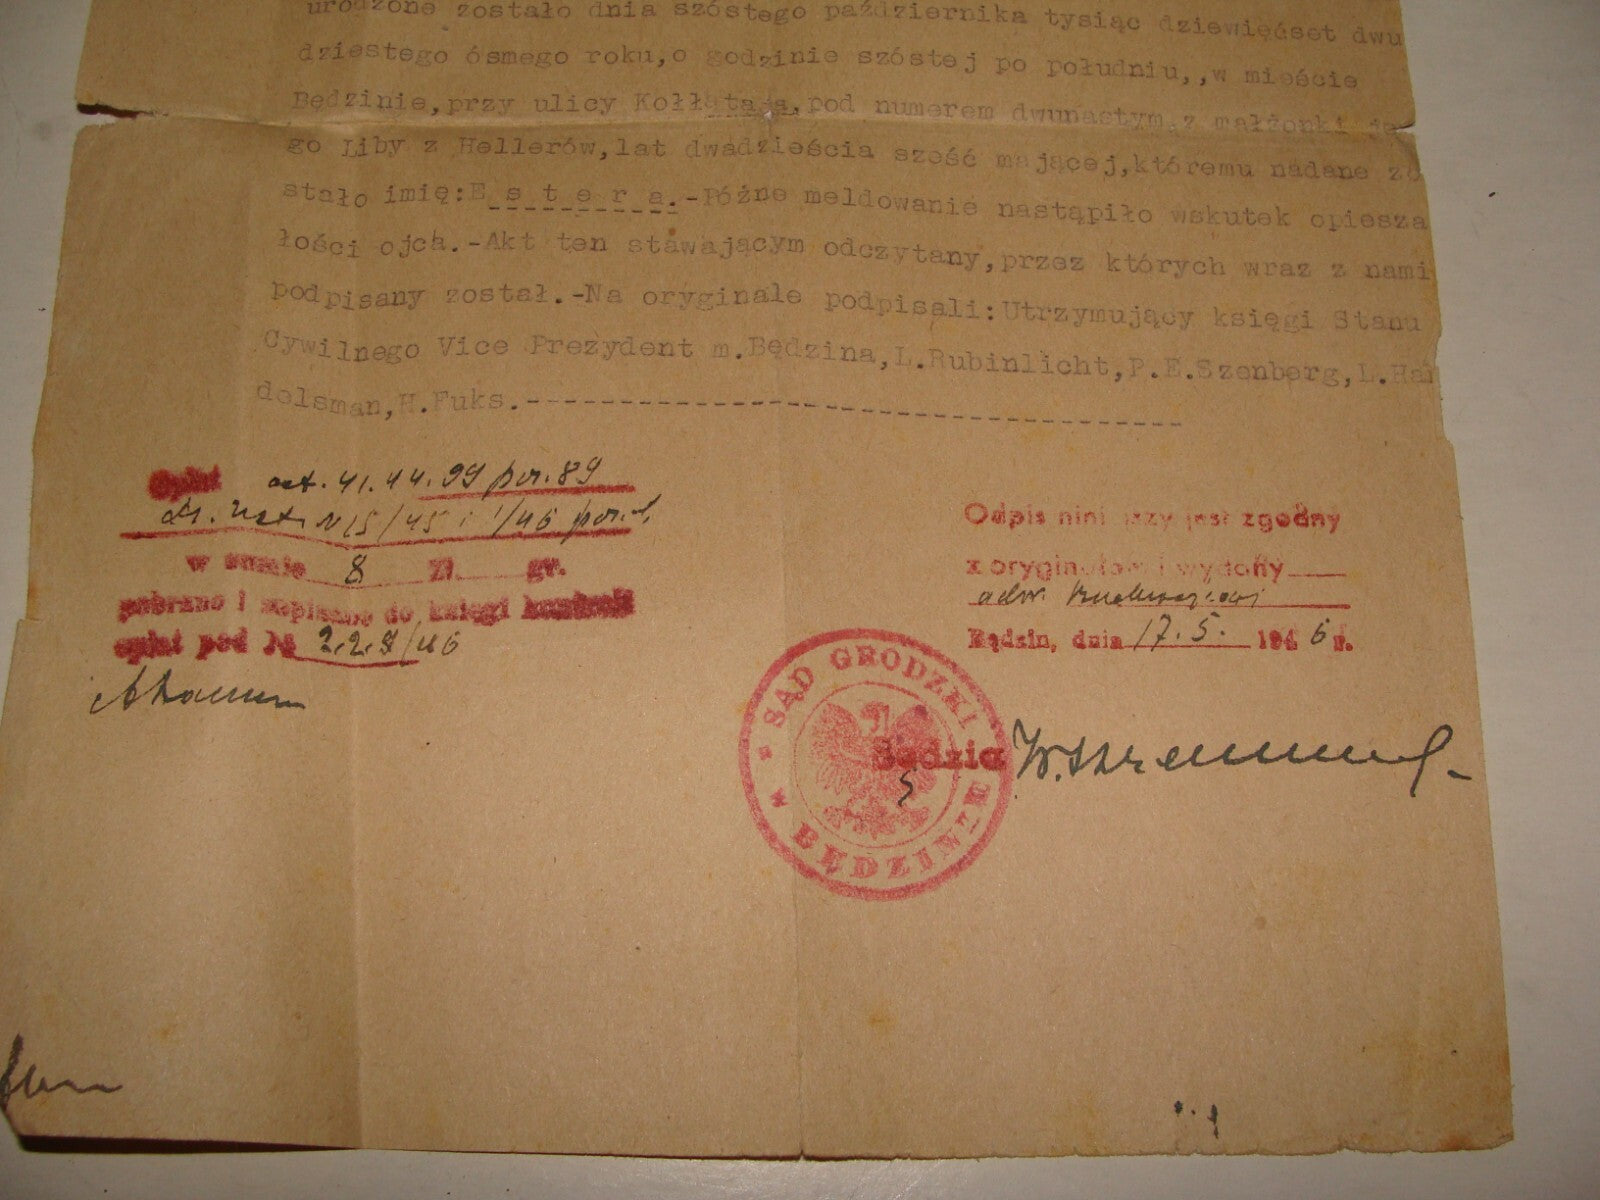 urodzone zostało dnia szóstego października tysiąc dziewięćset dwu
dziestego ósmego roku,o godzinie szóstej po południu,,w mieście
Będzinie,przy ulicy Kołłątaja,pod numerem dwunastym,z małżonki je
go Liby z Hellerów,lat dwadzieścia sześć mającej,któremu nadane zo
stało imię:E s t e r a.-Późne meldowanie nastąpiło wskutek opiesza
łości ojca.-Akt ten stawającym odczytany,przez których wraz z nami
podpisany został.-Na oryginale podpisali:Utrzymujący księgi Stanu
Cywilnego Vice Prezydent m.Będzina,L.Rubinlicht,P.E.Szenberg,L.Han
delsman,H.Fuks.
Opłat art. 41.44.99 por. 89
N 15/45 i 1/46
w sumie 8 zł. gr.
pobrano i zapisano do księgi kontroli
opłat pod № 228/46
Odpis niniejszy jest zgodny
z oryginałem i wydany
adw.
Będzin, dnia 17.5. 1946 r.
SĄD GRODZKI
W BĘDZINIE
Sędzia